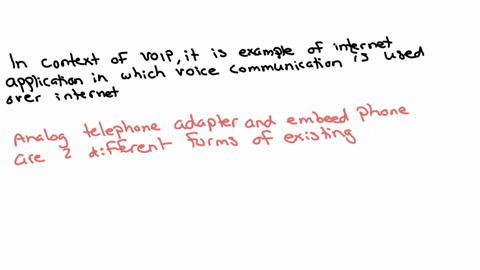 In context of VOIP, it is example of internet
application in which voice communication is used
over internet
Analog telephone adapter and embeed phone
are 2 different forms of existing